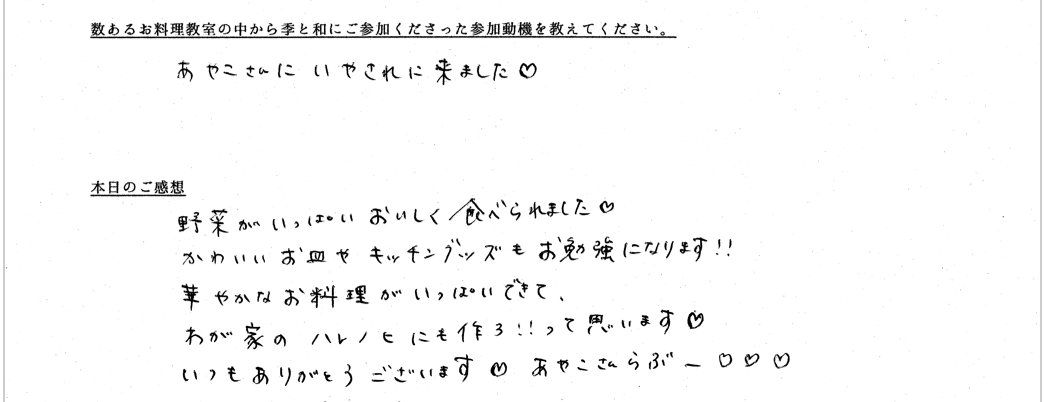 数あるお料理教室の中から季と和にご参加くださった参加動機を教えてください。
あやこさんに いやされに 来ました♡
本日のご感想
野菜がいっぱい おいしく 食べられました♡
かわいい お皿や キッチングッズも お勉強になります!!
華やかなお料理がいっぱいできて、
わが家の ハレノヒにも作ろ!!って思います♡
いつもありがとうございます♡ あやこさんらぶー♡♡♡